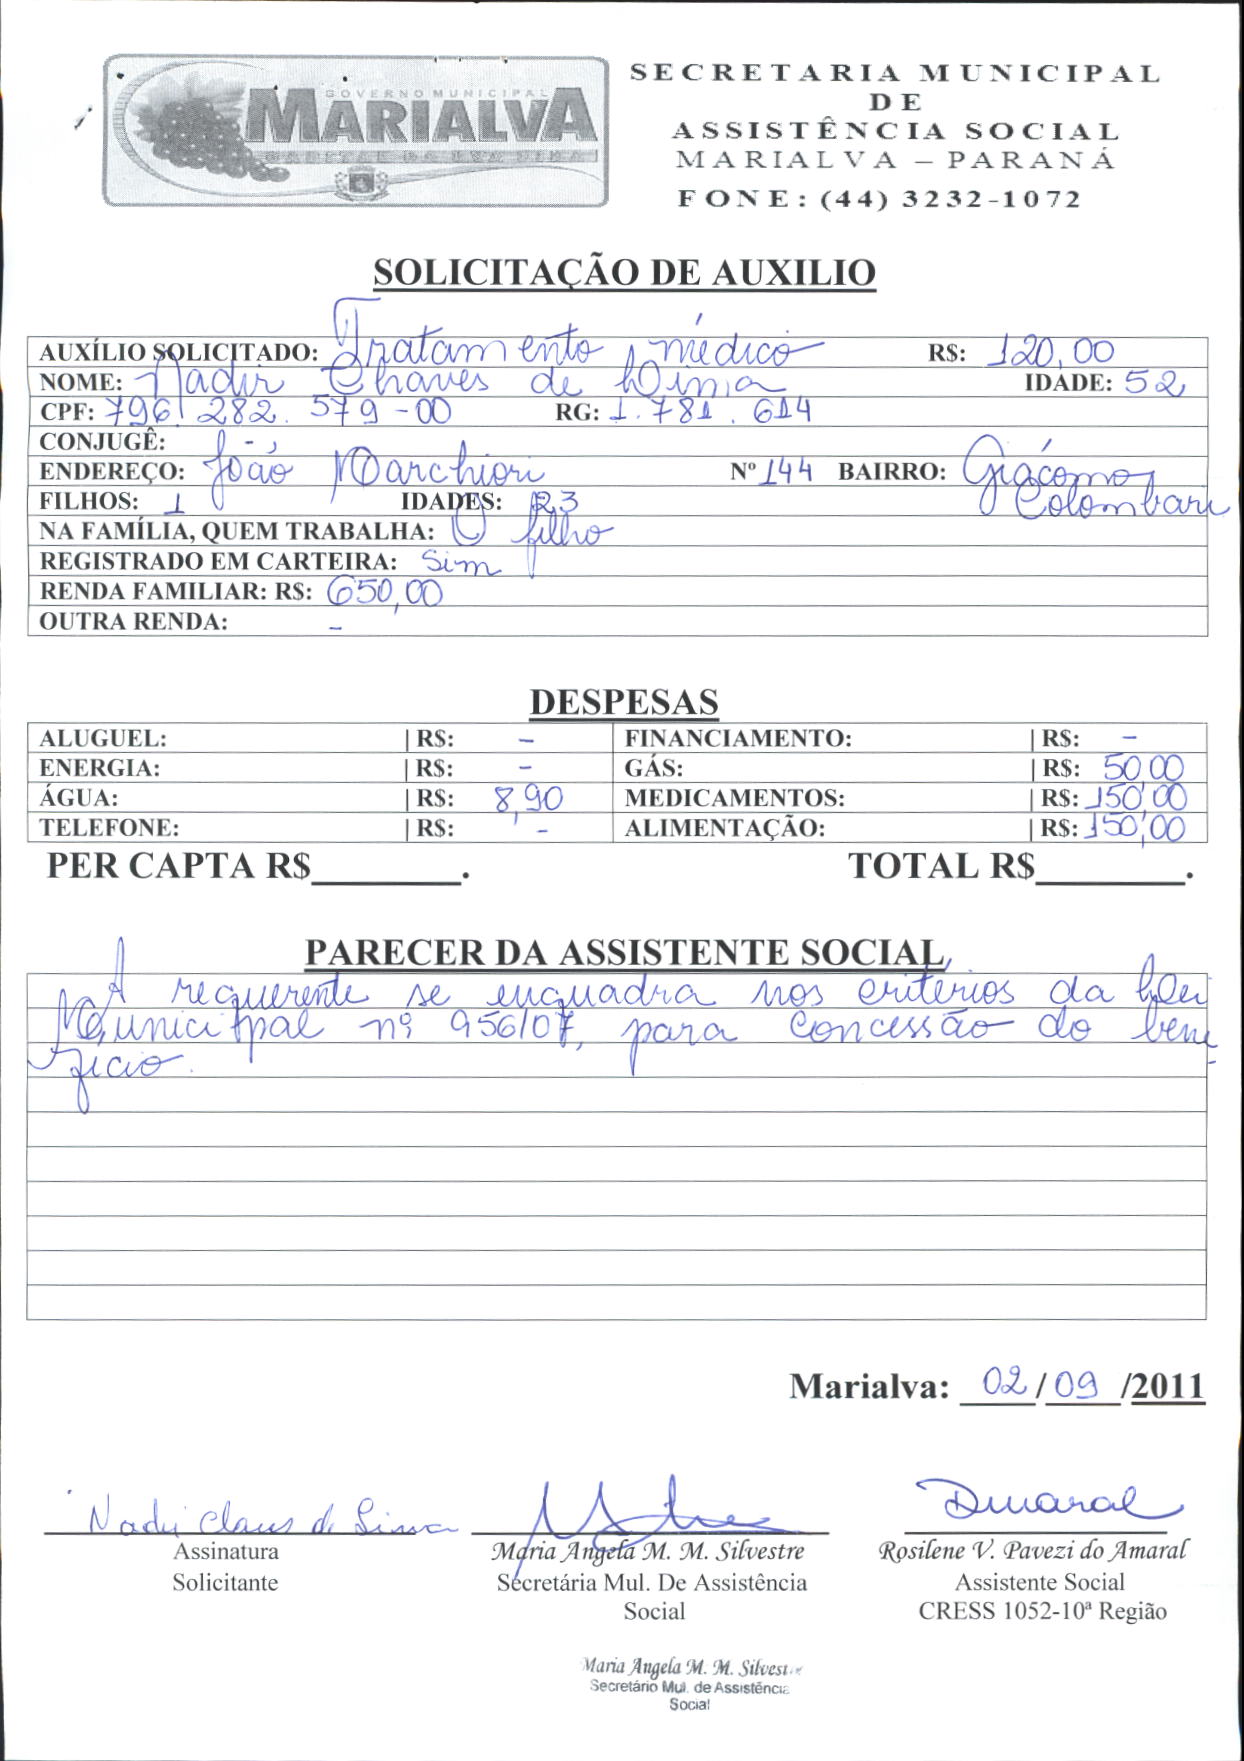 GOVERNO MUNICIPAL
MARIALVA
CAPITAL DA UVA FINA
SECRETARIA MUNICIPAL
DE
ASSISTÊNCIA SOCIAL
MARIALVA – PARANÁ
FONE: (44) 3232-1072
SOLICITAÇÃO DE AUXILIO
AUXÍLIO SOLICITADO: Tratamento médico R$: 120,00
NOME: Nadir Chaves de Lima IDADE: 52
CPF: 796.282.579-00 RG: 1.781.614
CONJUGÊ: -
ENDEREÇO: João Marchiori Nº 144 BAIRRO: Giácomo Colombari
FILHOS: 1 IDADES: 23
NA FAMÍLIA, QUEM TRABALHA: O filho
REGISTRADO EM CARTEIRA: Sim
RENDA FAMILIAR: R$: 650,00
OUTRA RENDA: -
DESPESAS
ALUGUEL: | R$: - FINANCIAMENTO: | R$: -
ENERGIA: | R$: - GÁS: | R$: 50,00
ÁGUA: | R$: 8,90 MEDICAMENTOS: | R$: 150,00
TELEFONE: | R$: - ALIMENTAÇÃO: | R$: 150,00
PER CAPTA R$________. TOTAL R$________.
PARECER DA ASSISTENTE SOCIAL
A requerente se enquadra nos critérios da Lei
Municipal nº 956/07, para concessão do bene
fício.
Marialva: 02/09/2011
Assinatura
Solicitante
Maria Angela M. M. Silvestre
Secretária Mul. De Assistência
Social
Rosilene V. Pavezi do Amaral
Assistente Social
CRESS 1052-10ª Região
Maria Angela M. M. Silvestre
Secretário Mul. de Assistência
Social